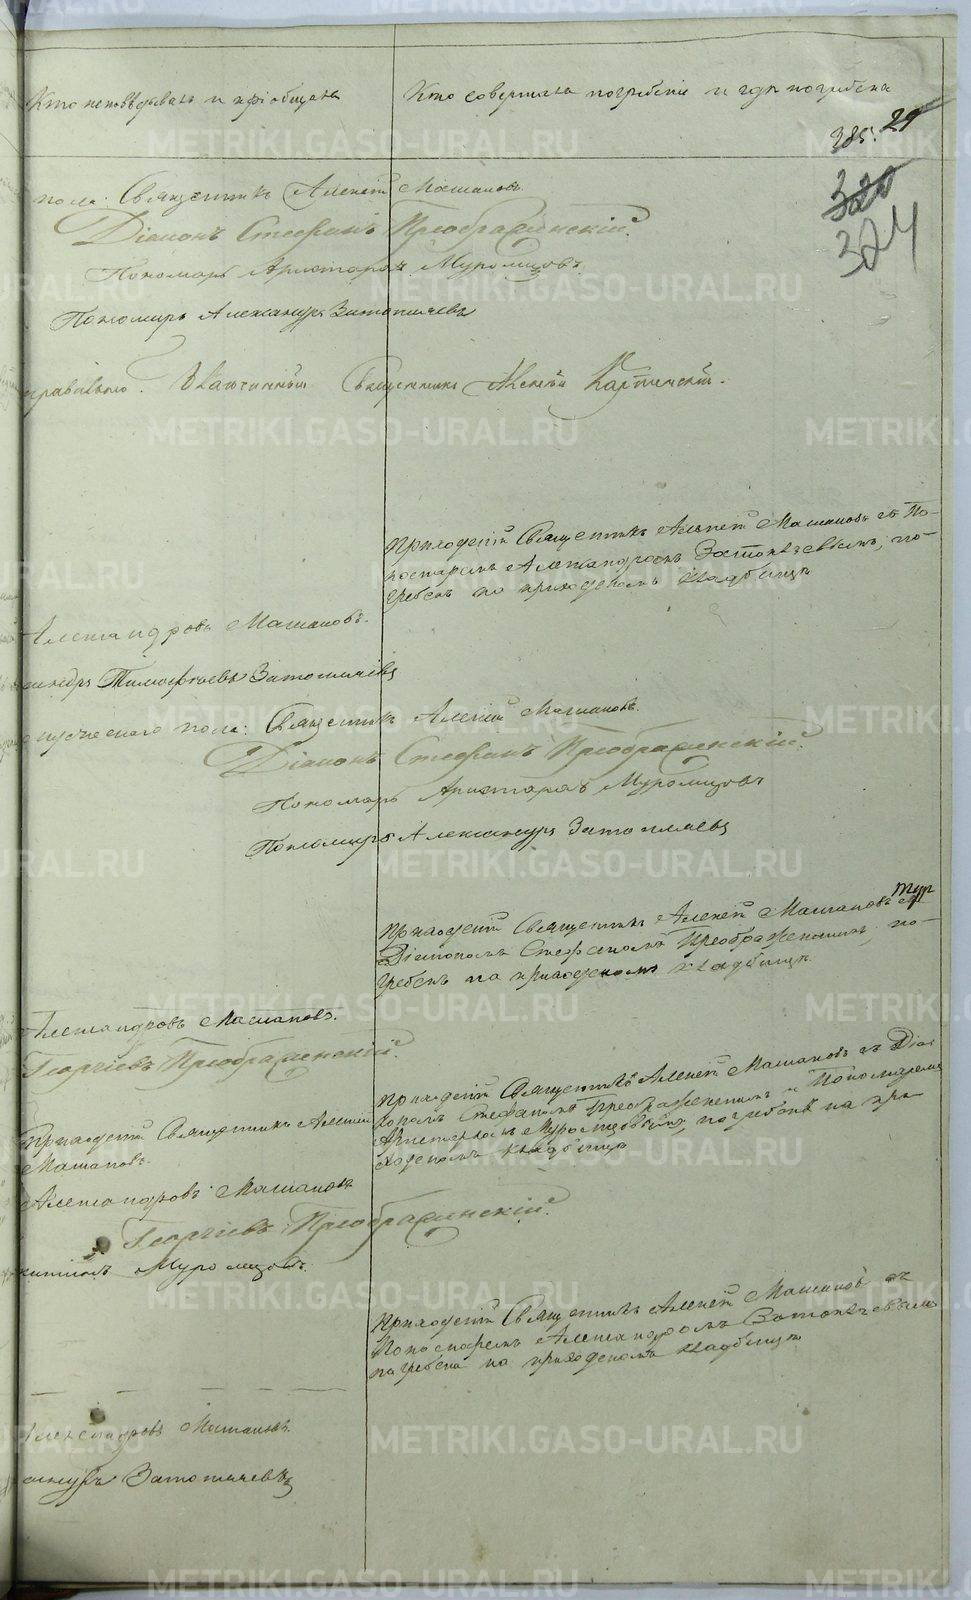 Кто исповѣдывалъ и пріобщалъ
Кто совершалъ погребеніе и гдѣ погребены
385. 29
320
324
пола: Священникъ Алексѣй Машановъ.
Діаконъ Стефанъ Преображенскій.
Пономарь Аристархъ Муромцовъ.
Пономарь Александръ Затопляевъ
правильно. Священникъ Алексѣй
Приходскій Священникъ Алексѣй Машановъ съ По-
номаремъ Александромъ, по-
гребенъ на приходскомъ кладбищѣ
Александровъ Машановъ.
Тимофѣевъ Затопляевъ
мужескаго пола: Священникъ Алексѣй Машановъ.
Діаконъ Стефанъ Преображенскій.
Пономарь Аристархъ Муромцовъ
Пономарь Александръ Затопляевъ
Приходскій Священникъ Алексѣй Машановъ съ
Діакономъ Стефаномъ Преображенскимъ, по-
гребенъ на приходскомъ кладбищѣ
Александровъ Машановъ.
Георгіевъ Преображенскій.
Приходскій Священникъ Алексѣй Машановъ съ Діа-
кономъ Стефаномъ Преображенскимъ и Пономаремъ
Аристархомъ Муромцовымъ, погребенъ на при-
ходскомъ кладбищѣ
Приходскій Священникъ Алексѣй
Машановъ.
Александровъ Машановъ
Георгіевъ Преображенскій.
Муромцовъ.
Приходскій Священникъ Алексѣй Машановъ съ
Пономаремъ Александромъ
погребена на приходскомъ кладбищѣ
Александровъ Машановъ.
Затопляевъ
METRIKI.GASO-URAL.RU